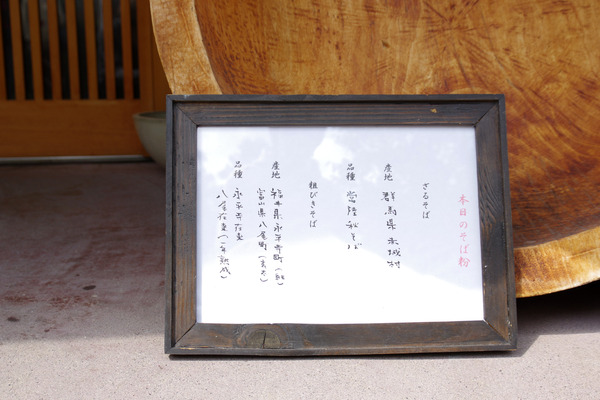 本日のそば粉
ざるそば
産地 群馬県赤城村
品種 常陸秋そば
粗びきそば
産地 福井県永平寺町
富山県八尾町
品種 永平寺在来
八尾在来(一年熟成)